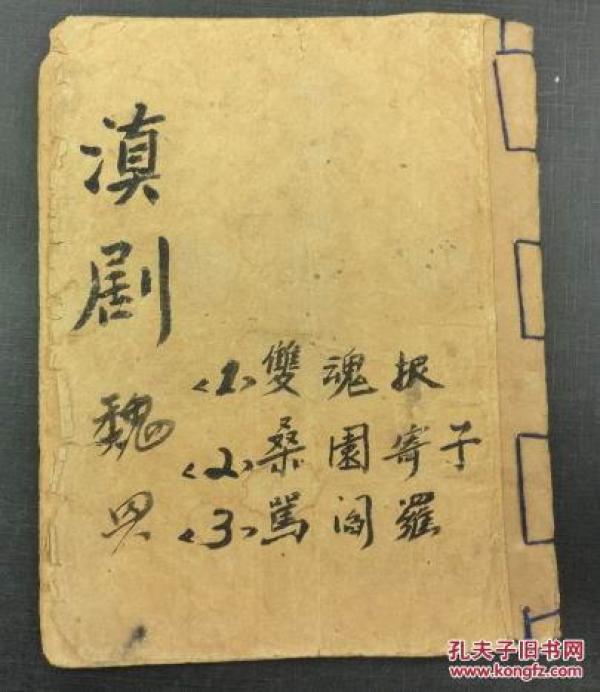 滇剧
魏
<1>雙魂
<2>桑園寄子
<3>罵阎羅
孔夫子旧书网
www.kongfz.com